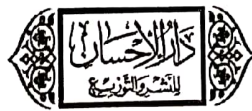 دَارُ الإِحْسَانِ
لِلنَّشْرِ وَالتَّوْزِيْعِ